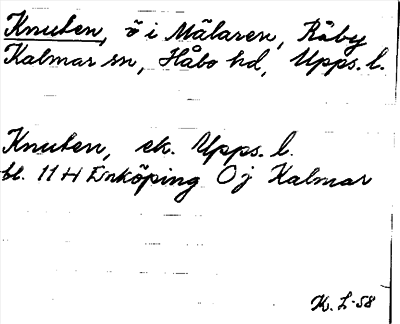 Knuten, ö i Mälaren, Råby
Kalmar sn, Håbo hd, Upps. l.
Knuten, ek. Upps. l.
bl. 11 H Enköping Oj Kalmar
K. L-58